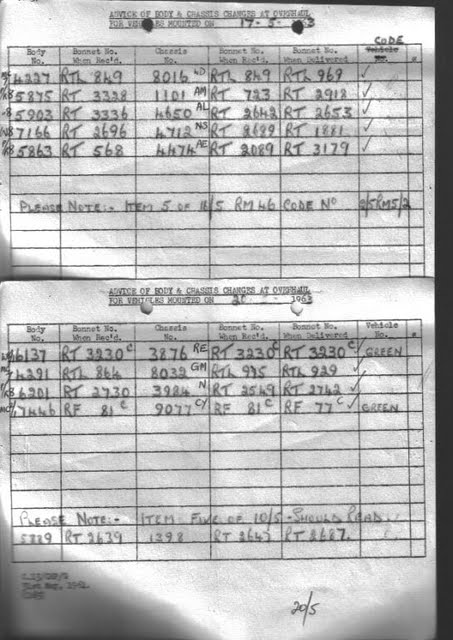 ADVICE OF BODY & CHASSIS CHANGES AT OVERHAUL
FOR VEHICLES MOUNTED ON 17-5- 63
CODE
Body No. Bonnet No. When Rec'd. Chassis No. Bonnet No. When Rec'd. Bonnet No. When Delivered Vehicle No.
4227 RTL 849 8016 RTL 849 RTL 969 ✓
5875 RT 3328 1101 AM RT 723 RT 2918 ✓
5903 RT 3336 4650 AL RT 2642 RT 2653 ✓
7166 RT 2696 4712 NS RT 2689 RT 1881 ✓
5863 RT 568 4474 AE RT 2089 RT 3179 ✓
PLEASE NOTE:- ITEM 5 OF 16/5 RM 46 CODE No 2/5RM5/2
ADVICE OF BODY & CHASSIS CHANGES AT OVERHAUL
FOR VEHICLES MOUNTED ON 20 1963
Body No. Bonnet No. When Rec'd. Chassis No. Bonnet No. When Rec'd. Bonnet No. When Delivered Vehicle No.
6137 RT 3230 C 3876 RE RT 3230 C RT 3230 C ✓ GREEN
4291 RTL 864 8032 GM RTL 995 RTL 929 ✓
6201 RT 2730 3984 N RT 2549 RT 2742 ✓
7446 RF 81 C 9077 CY RF 81 C RF 77 C ✓ GREEN
PLEASE NOTE:- ITEM FIVE OF 10/5 - SHOULD READ
RT 2639 1398 RT 2647 RT 2687.
20/5